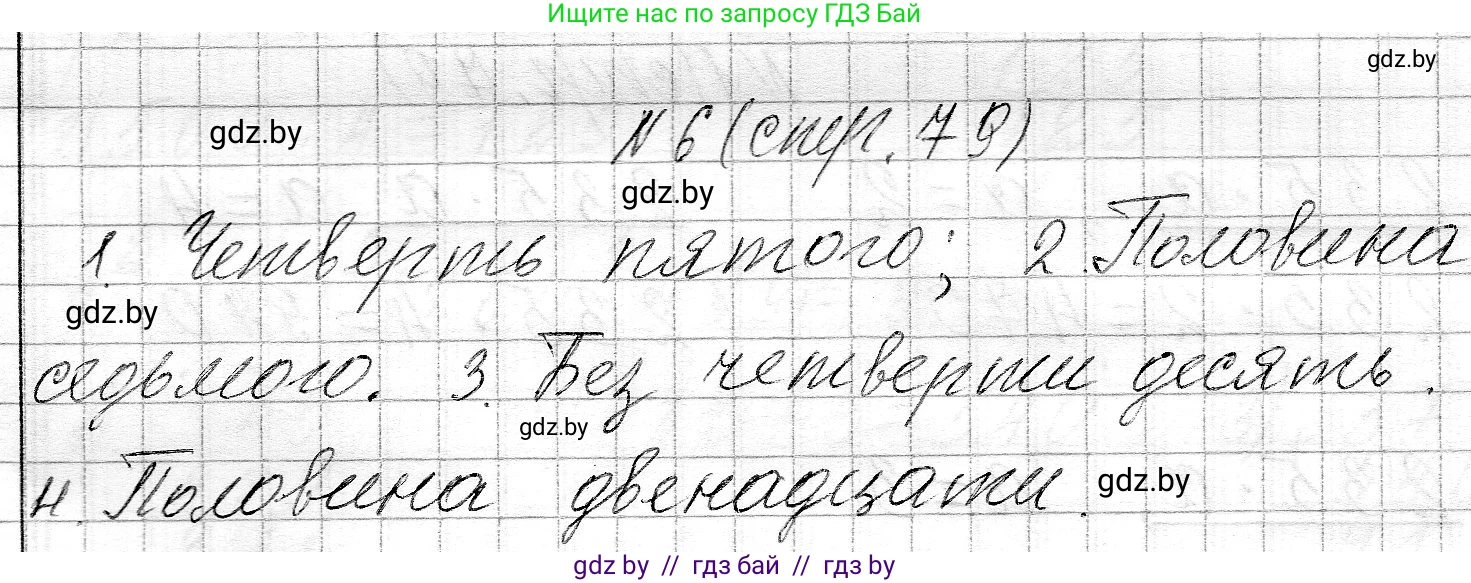 Ищите нас по запросу ГДЗ Бай
gdz.by
gdz.by
N 6 (стр. 79)
gdz.by
1. Четверть пятого; 2. Половина
gdz.by
седьмого. 3. Без четверти десять.
gdz.by
4. Половина двенадцати.
gdz.by
gdz.by // гдз бай // гдз by